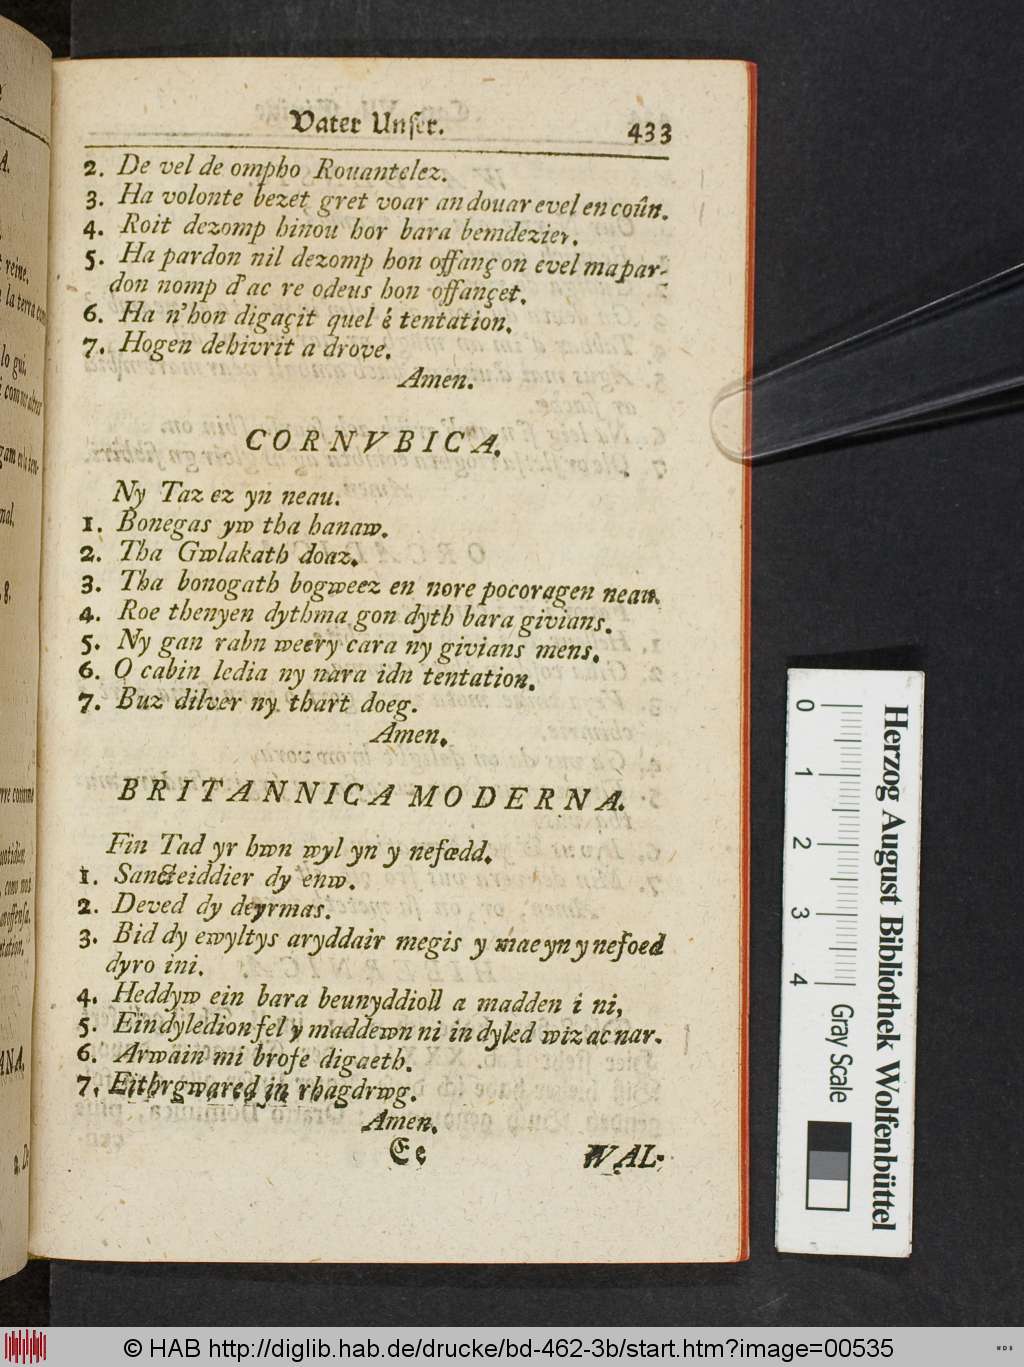 Vater Unser. 433
2. De vel de ompho Rouantelez.
3. Ha volonte bezet gret voar an douar evel en coûn.
4. Roit dezomp hinou hor bara bemdezier.
5. Ha pardon nil dezomp hon offançon evel mapar-
don nomp d'ac re odeus hon offançet.
6. Ha n'hon digaçit quel é tentation.
7. Hogen dehivrit a drove.
Amen.
CORNVBICA.
Ny Taz ez yn neau.
1. Bonegas yw tha hanaw.
2. Tha Gwlakath doaz.
3. Tha bonogath bogweez en nore pocoragen neau.
4. Roe thenyen dythma gon dyth bara givians.
5. Ny gan rahn weery cara ny givians mens.
6. O cabin ledia ny nara idn tentation.
7. Buz dilver ny thart doeg.
Amen.
BRITANNICA MODERNA.
Fin Tad yr hwn wyl yn y nefœdd.
1. Sancteiddier dy enw.
2. Deved dy deyrmas.
3. Bid dy ewyltys aryddair megis y mae yn y nefoed
dyro ini.
4. Heddyw ein bara beunyddioll a madden i ni,
5. Ein dyledion fel y maddewn ni in dyled wiz ac nar.
6. Arwain mi brofe digaeth.
7. Eithrgwared jn rhagdrwg.
Amen.
Ee WAL-
Herzog August Bibliothek Wolfenbüttel
0 1 2 3 4 Gray Scale
© HAB http://diglib.hab.de/drucke/bd-462-3b/start.htm?image=00535